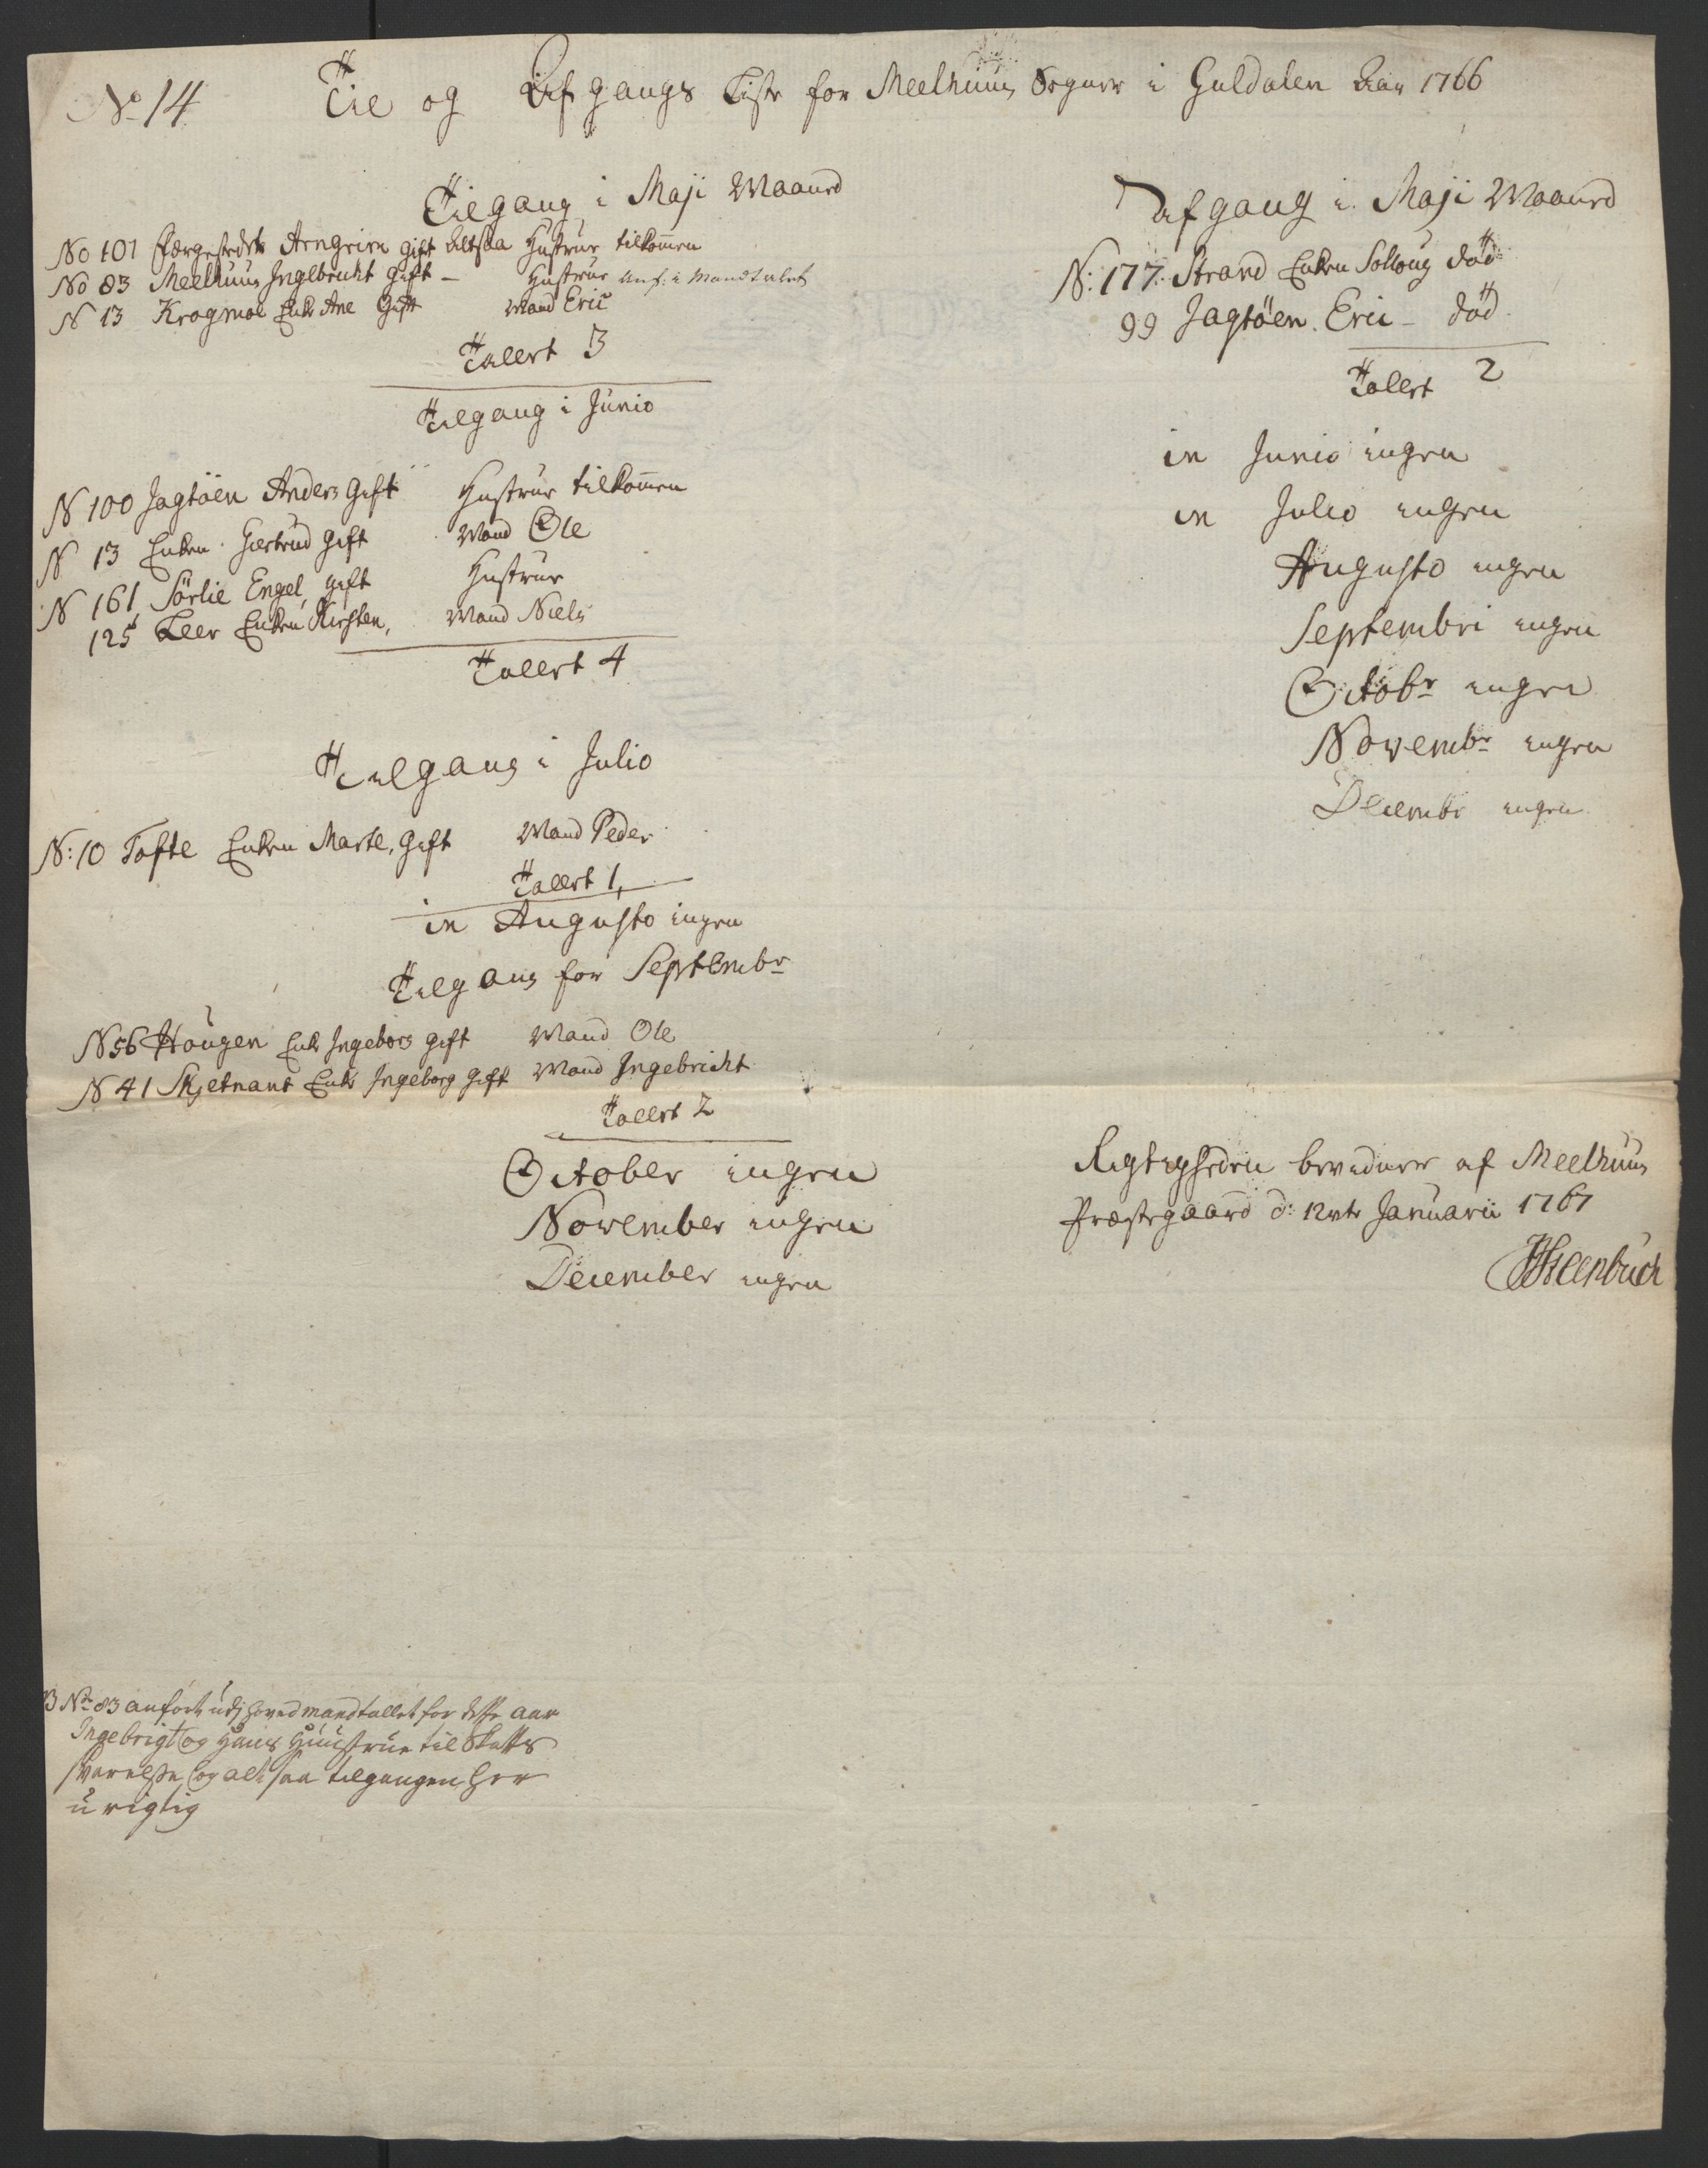 No 14
Til og Afgangs Liste for Meelhuus Sogner i Guldalen Aar 1766
Tilgang i Maji Maaned
No 101 Færgestedet Arngrim gift altsaa Hustrue tilkommen
No 83 Meelhuus Ingebricht gift - Hustrue anf: i Mandtalet
N 13 Krogmoe Enke Ane Gift Mand Eric
Tallet 3
Tilgang i Junio
N 100 Jagtöen Anders Gift Hustrue tilkommen
N 13 Enken Giertrud Gift Mand Ole
N 161 Sörlie Engel, gift Hustrue
125 Leer Enken Kirsten, Mand Niels
Tallet 4
Tilgang i Julio
N: 10 Tofte Enken Marte, Gift Mand Peder
Tallet 1,
in Augusto ingen
Tilgang for Septembr
N 56 Hougen Enke Ingebor gift Mand Ole
N 41 Skjetnant Enke Ingeborg Gift Mand Ingebricht
Tallet 2
October ingen
November ingen
December ingen
Afgang i Maji Maaned
N: 177. Strand Enken Solloug död
99 Jagtöen. Eric - död.
Tallet 2
in Junio ingen
in Julio ingen
Augusto ingen
Septembri ingen
Octobr ingen
Novembr ingen
Decembr ingen
Rigtigheden bevidner af Meelhuus
Præstegaard d: 12te Januarii 1767
JHSteenbuch
No 83 anfört udj hoved mandtallet for dette aar
Ingebrigt og Hans Huustrue til Skatts
svarelse, og altsaa tilgangen her
urigtig